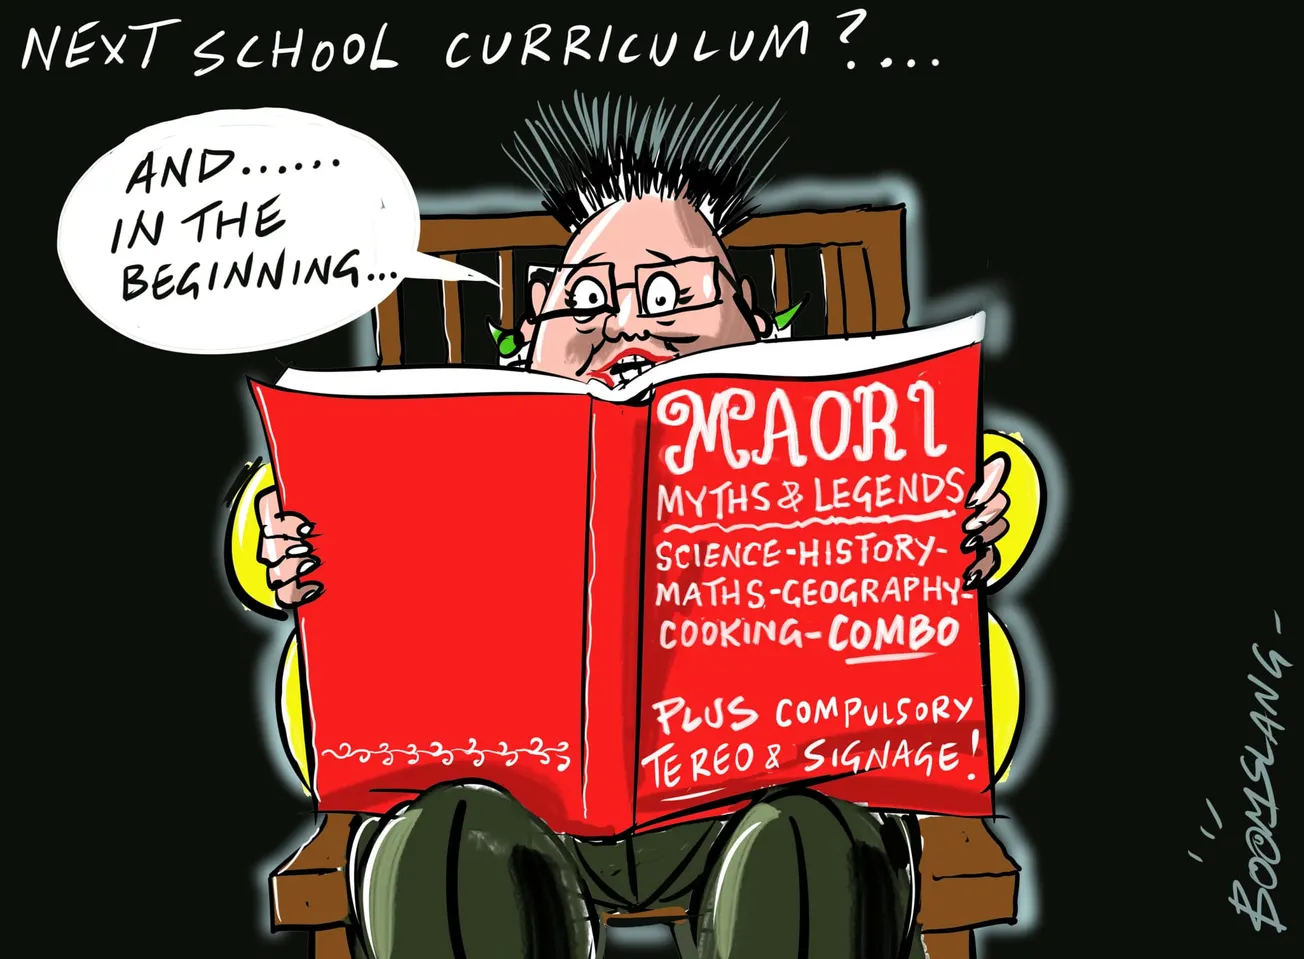 NEXT SCHOOL CURRICULUM?....
AND......
IN THE
BEGINNING...
MAORI
MYTHS & LEGENDS
SCIENCE-HISTORY-
MATHS-GEOGRAPHY-
COOKING-COMBO
PLUS COMPULSORY
TE REO & SIGNAGE!
BOOMSLANG